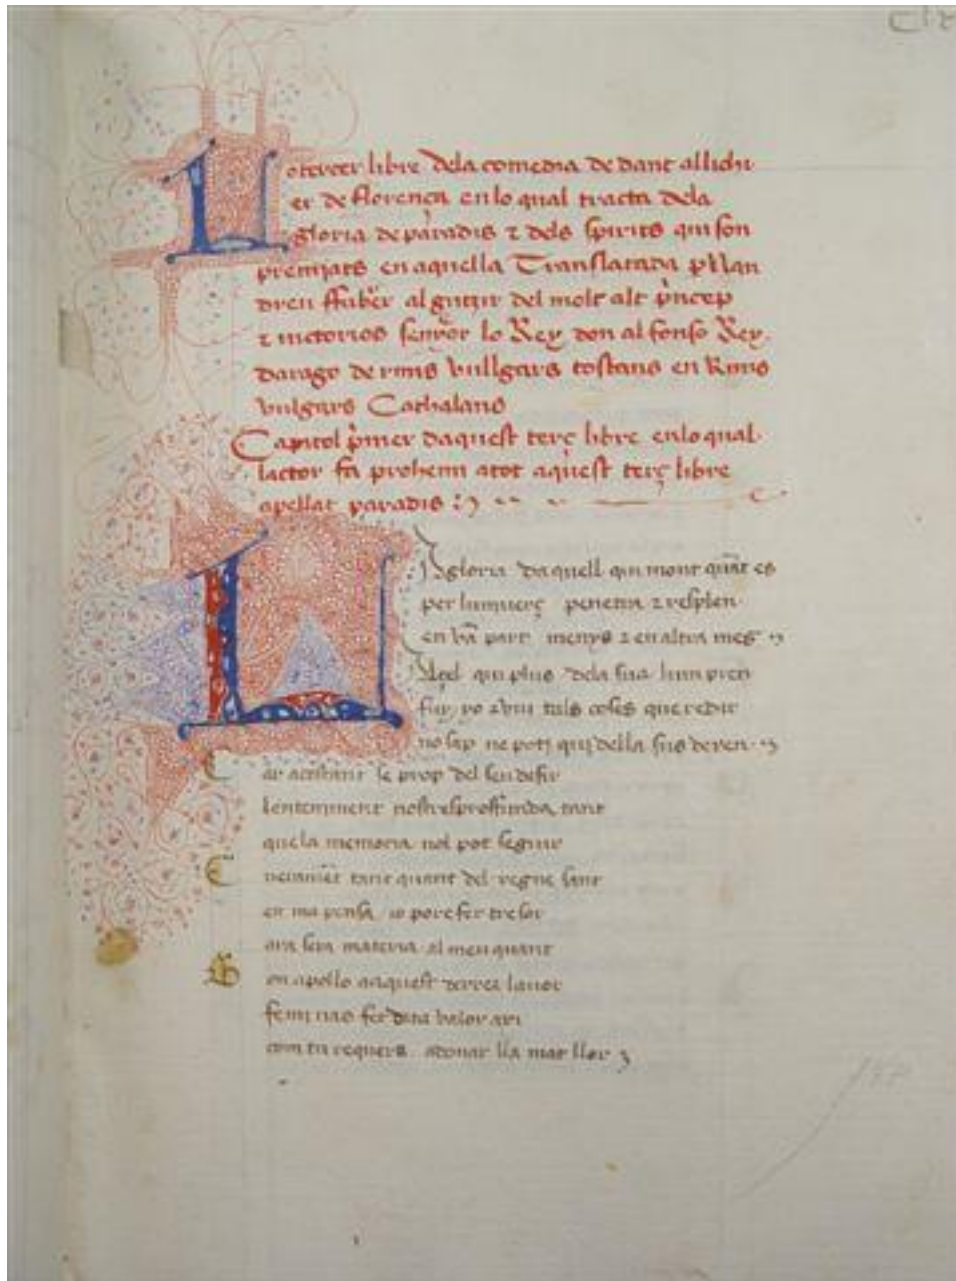 Lo tercer libre dela comedia de dant allighi
er de florença enlo qual tracta dela
gloria de paradis z dels spirits qui son
premjats en aquella Translatada p Nan
dreu ffabrer algutzir del molt alt princep
z victorios senyor lo Rey don alfonso Rey
darago de rims vullgars toscans en Rims
vulgars Cathalans
Capitol primer daquest terç libre enlo qual
lactor fa prohemi atot aquest terç libre
apellat paradis
La gloria daquell qui mont quant es
per lunivers penetra z resplen
en una part menys z en altra mes
Al cel qui plus dela sua lum pren
fuy yo z viu tals coses que redir
no sap ne pot qui della sus deven
Car acostant se prop del seu desir
lenteniment nostre sproffunda tant
que la memoria nol pot seguir
E verament tant quant del regne sant
en ma pensa io pore fer tresor
ara sera materia al meu quant
Bon apollo aaquest derrer lavor
fem vas fet dita valor axi
com tu requers adonar lla mat llor